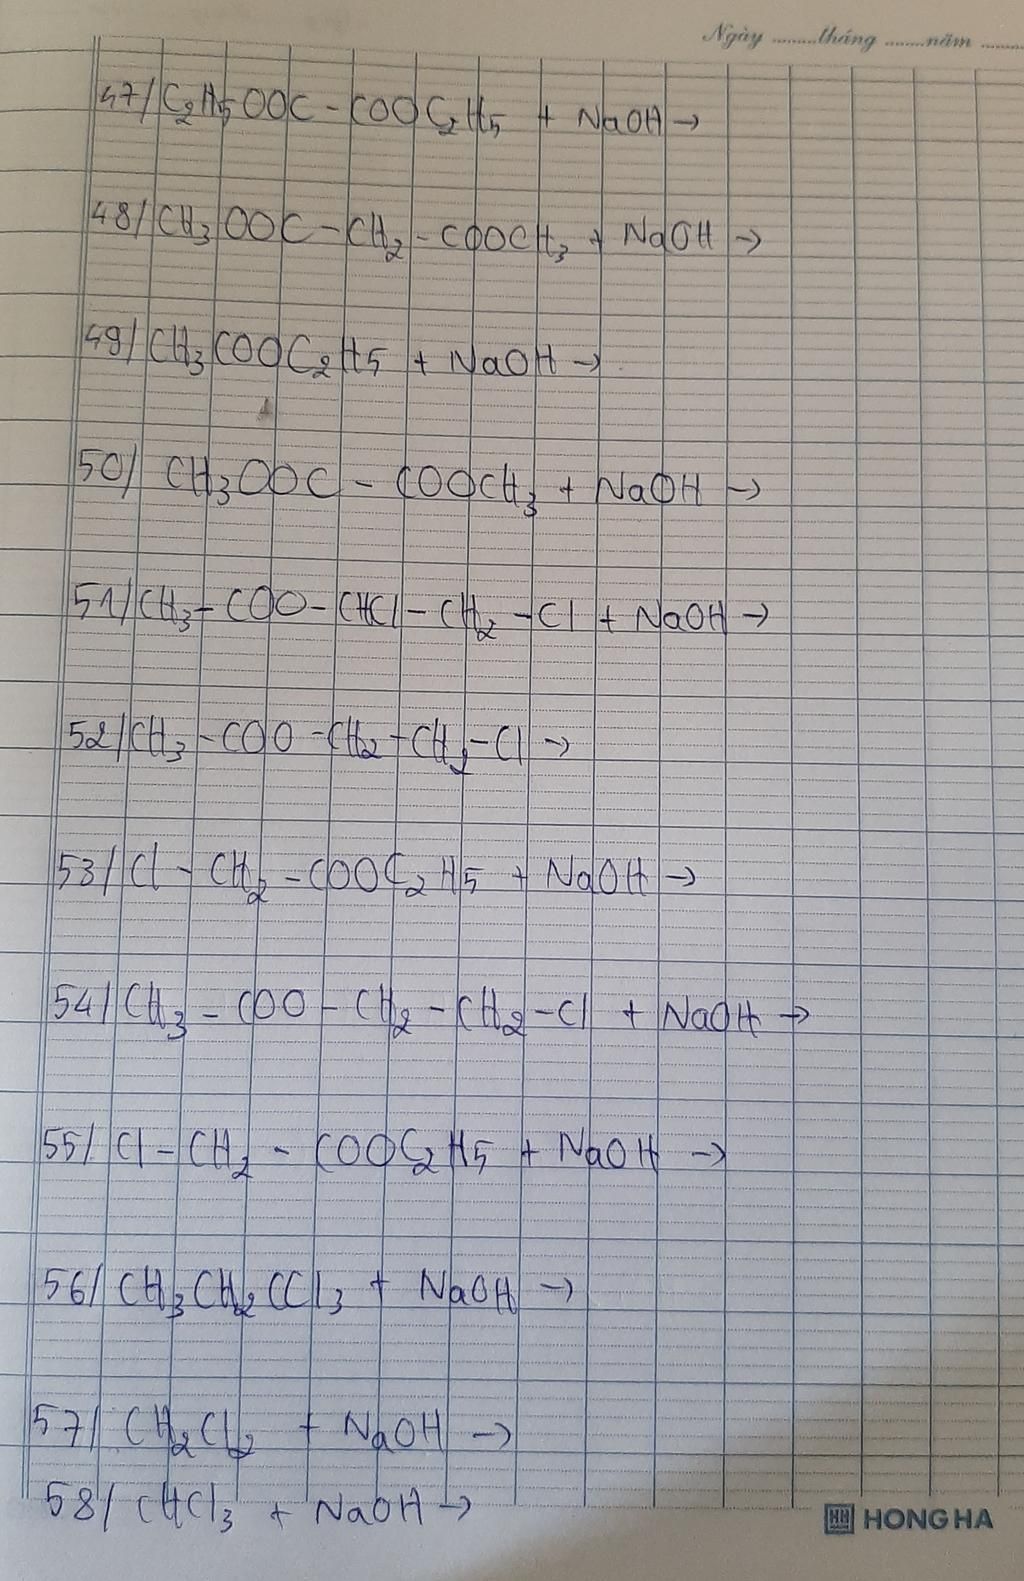 Ngày ........tháng .......năm .......
47/ C₂H₅OOC - COOC₂H₅ + NaOH →
48/ CH₃OOC - CH₂ - COOCH₃ + NaOH →
49/ CH₃COOC₂H₅ + NaOH →
50/ CH₃OOC - COOCH₃ + NaOH →
51/ CH₃ - COO - CHCl - CH₂ - Cl + NaOH →
52/ CH₃ - COO - CH₂ - CH₂ - Cl →
53/ Cl - CH₂ - COOC₂H₅ + NaOH →
54/ CH₃ - COO - CH₂ - CH₂ - Cl + NaOH →
55/ Cl - CH₂ - COOC₂H₅ + NaOH →
56/ CH₃CH₂CCl₃ + NaOH →
57/ CH₂Cl₂ + NaOH →
58/ CHCl₃ + NaOH →
HH HONG HA